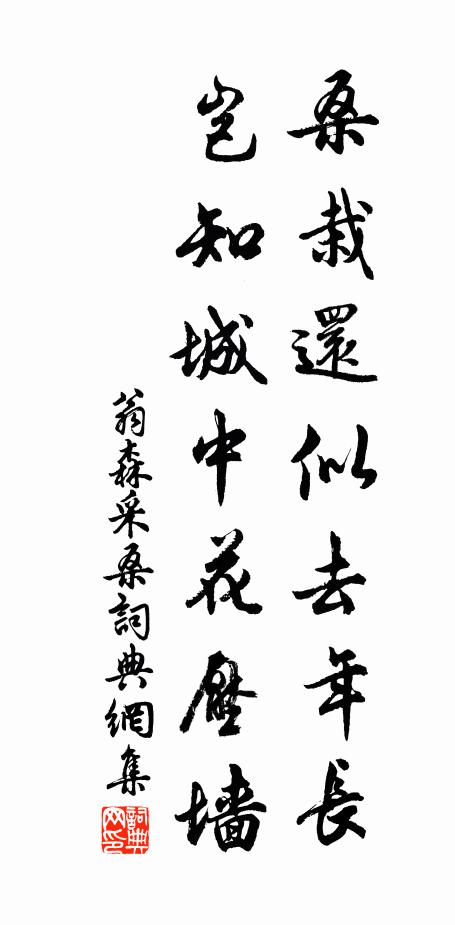 桑栽還似去年長
豈知城中花壓墻
翁森采桑詞典網集
詞典网印